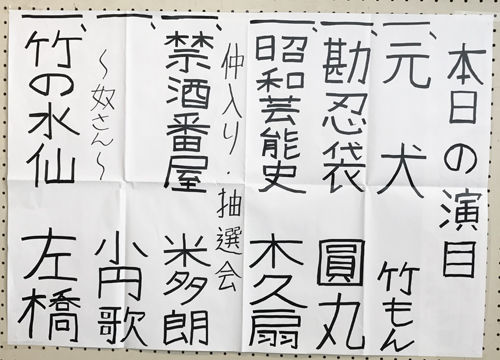 本日の演目
一、元犬 竹もん
一、勘忍袋 圓丸
一、昭和芸能史 木久扇
仲入り・抽選会
一、禁酒番屋 米多朗
一、〜奴さん〜 小円歌
一、竹の水仙 左橋